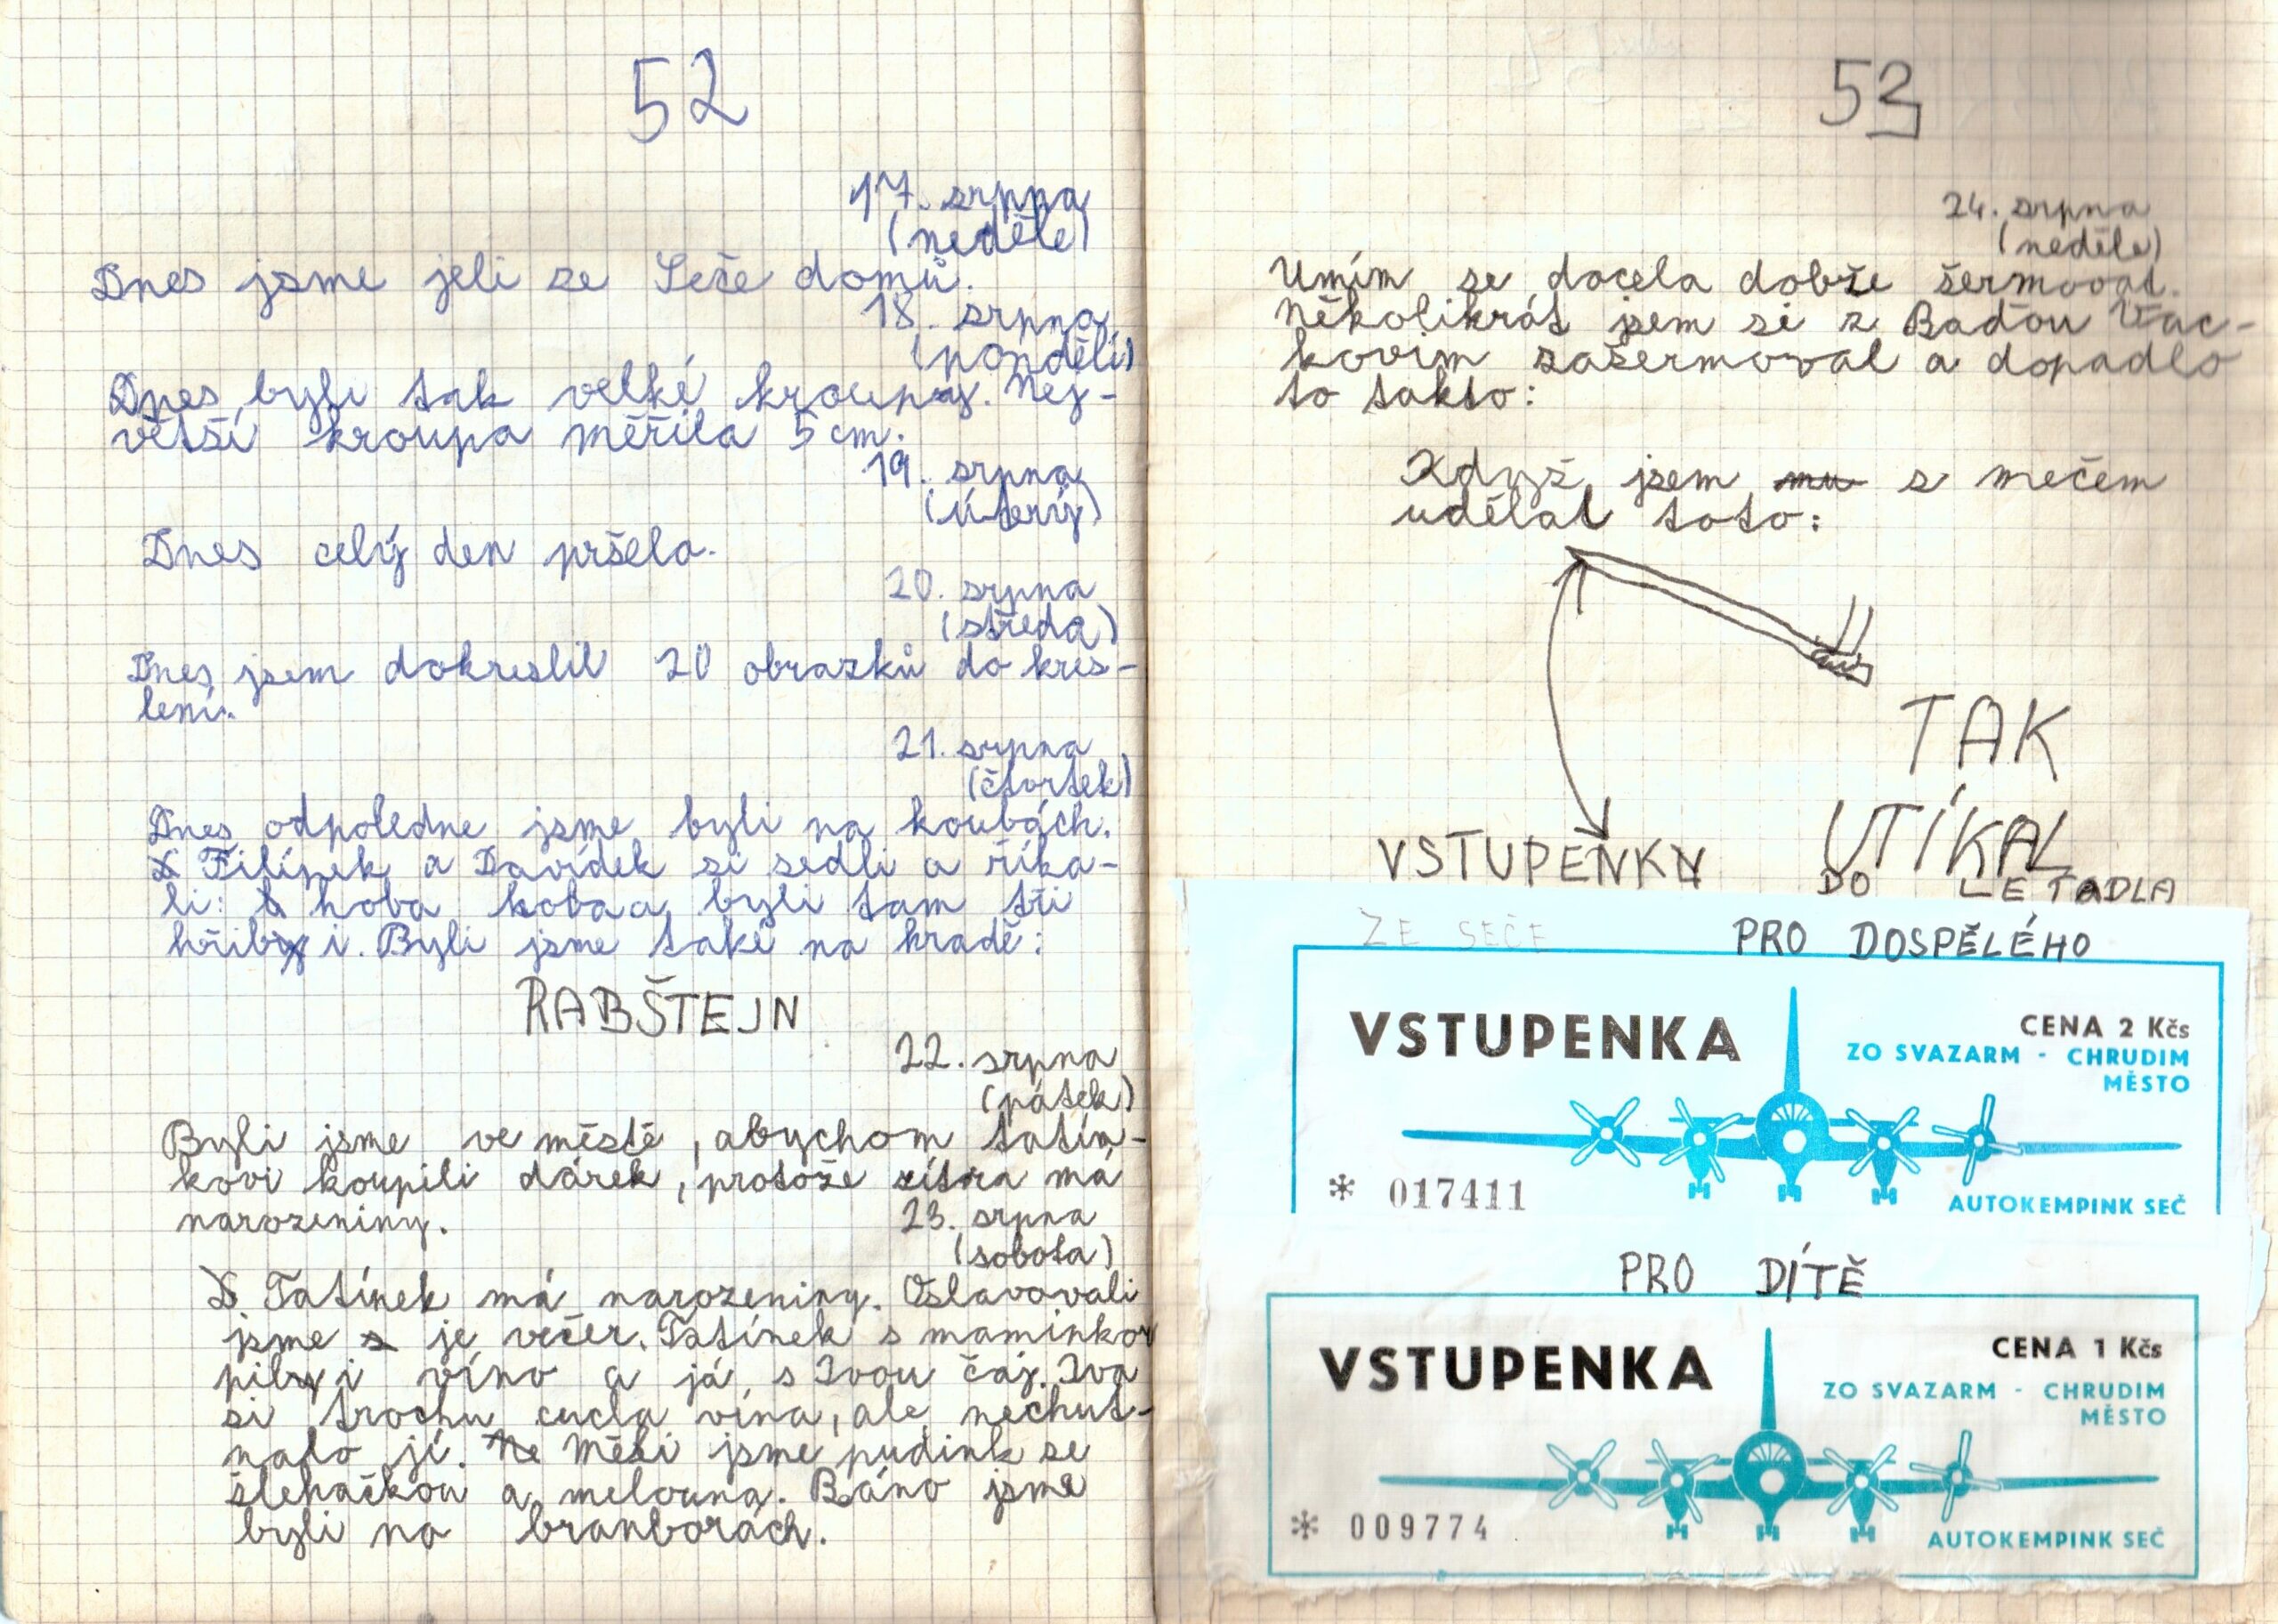 52
17. srpna
(neděle)
Dnes jsme jeli ze Seče domů.
18. srpna
(pondělí)
Dnes byli tak velké kroupy. Nej-
větší kroupa měřila 5 cm.
19. srpna
(úterý)
Dnes celý den pršelo.
20. srpna
(středa)
Dnes jsem dokreslil 20 obrazků do kres-
lení.
21. srpna
(čtvrtek)
Dnes odpoledne jsme byli na houbách.
Filípek a Davídek si sedli a říka-
li: hoba hoba a byli tam tři
hřibi. Byli jsme také na hradě:
RABŠTEJN
22. srpna
(pátek)
Byli jsme ve městě, abychom tatín-
kovi koupili dárek, protože zítra má
narozeniny.
23. srpna
(sobota)
Tatínek má narozeniny. Oslavovali
jsme je večer. Tatínek s maminkou
pili víno a já s Ivou čaj. Iva
si trochu cucla vína, ale nechut-
nalo jí. Měli jsme pudink se
šlehačkou a melouna. Ráno jsme
byli na bramborách.
53
24. srpna
(neděle)
Umím se docela dobře šermovat.
Několikrát jsem si z Baďou Vac-
kovim zašermoval a dopadlo
to takto:
Když jsem mu s mečem
udělal toto:
TAK
UTÍKAL
VSTUPENKY DO LETADLA
ZE SEČE PRO DOSPĚLÉHO
VSTUPENKA
CENA 2 Kčs
ZO SVAZARM - CHRUDIM
MĚSTO
* 017411
AUTOKEMPINK SEČ
PRO DÍTĚ
VSTUPENKA
CENA 1 Kčs
ZO SVAZARM - CHRUDIM
MĚSTO
* 009774
AUTOKEMPINK SEČ